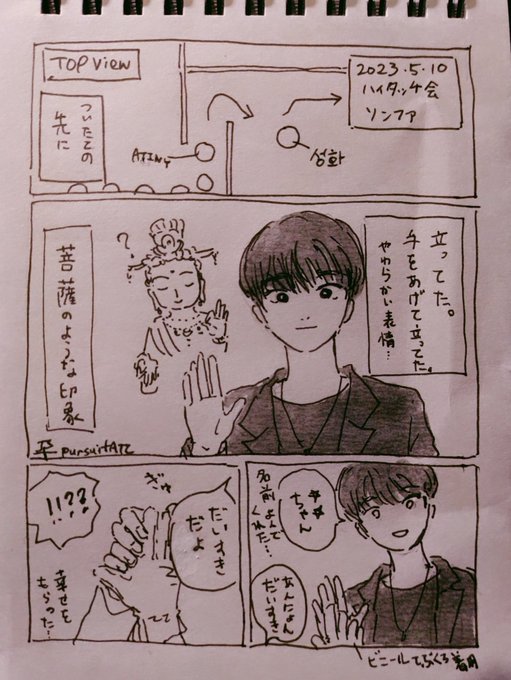 TOP View
2023.5.10
ハイタッチ会
ソンファ
ついたての
先に
ATINY
성화
立ってた。
手をあげて立ってた。
やわらかい表情…
?
菩薩のような印象
pursuitATZ
☆☆
ちゃん
名前よんで
くれた…
あんにょん
だいすき
ビニールてぶくろ着用
だいすき
だよ
ぎゅ
!!??
幸せを
もらった…